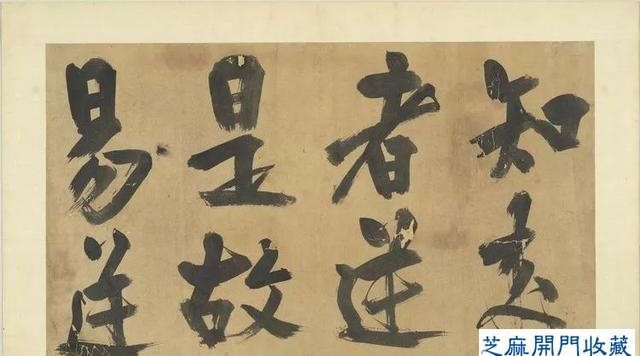 知來
者逆
是故
易逆
芝麻開門收藏